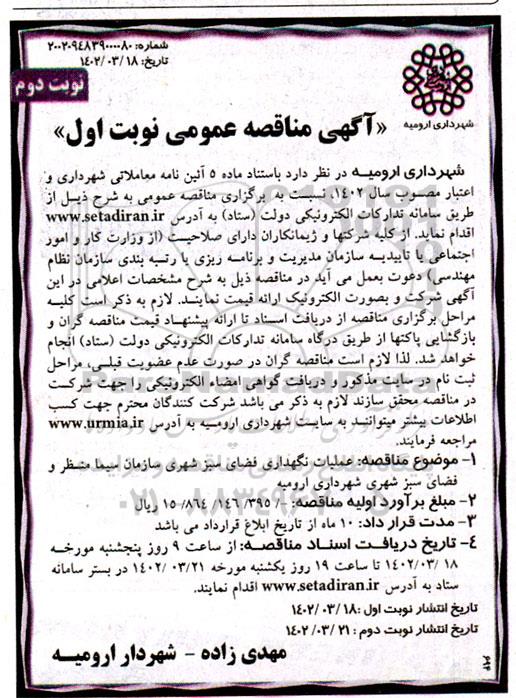 شماره: ۲۰۰۲۰۹۴۸۳۹۰۰۰۰۸۰
تاریخ: ۱۴۰۲/۰۳/۱۸
نوبت دوم
شهرداری ارومیه
«آگهی مناقصه عمومی نوبت اول»
شهرداری ارومیه در نظر دارد باستناد ماده ۵ آئین نامه معاملاتی شهرداری و
اعتبار مصوب سال ۱۴۰۲، نسبت به برگزاری مناقصه عمومی به شرح ذیل از
طریق سامانه تدارکات الکترونیکی دولت (ستاد) به آدرس www.setadiran.ir
اقدام نماید. از کلیه شرکتها و پیمانکاران دارای صلاحیت (از وزارت کار و امور
اجتماعی یا تأییدیه سازمان مدیریت و برنامه ریزی یا رتبه بندی سازمان نظام
مهندسی) دعوت بعمل می آید در مناقصه ذیل به شرح مشخصات اعلامی در این
آگهی شرکت و بصورت الکترونیک ارائه قیمت نمایند. لازم به ذکر است کلیه
مراحل برگزاری مناقصه از دریافت اسناد تا ارائه پیشنهاد قیمت مناقصه گران و
بازگشایی پاکتها از طریق درگاه سامانه تدارکات الکترونیکی دولت (ستاد) انجام
خواهد شد. لذا لازم است مناقصه گران در صورت عدم عضویت قبلی، مراحل
ثبت نام در سایت مذکور و دریافت گواهی امضاء الکترونیکی را جهت شرکت
در مناقصه محقق سازند لازم به ذکر می باشد شرکت کنندگان محترم جهت کسب
اطلاعات بیشتر میتوانند به سایت شهرداری ارومیه به آدرس www.urmia.ir
مراجعه فرمایند.
۱- موضوع مناقصه: عملیات نگهداری فضای سبز شهری سازمان سیما منظر و
فضای سبز شهری شهرداری ارومیه
۲- مبلغ برآورد اولیه مناقصه: -/۱۵/۸۶۴/۱۴۶/۳۹۵ ریال
۳- مدت قرار داد: ۱۰ ماه از تاریخ ابلاغ قرارداد می باشد
۴- تاریخ دریافت اسناد مناقصه: از ساعت ۹ روز پنجشنبه مورخه
۱۴۰۲/۰۳/۱۸ تا ساعت ۱۹ روز یکشنبه مورخه ۱۴۰۲/۰۳/۲۱ در بستر سامانه
ستاد به آدرس www.setadiran.ir اقدام نمایند.
تاریخ انتشار نوبت اول: ۱۴۰۲/۰۳/۱۸
تاریخ انتشار نوبت دوم: ۱۴۰۲/۰۳/۲۱
مهدی زاده - شهردار ارومیه